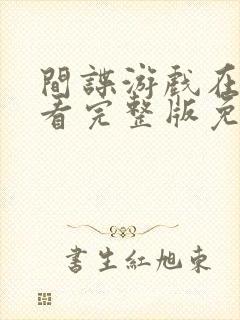 間諜游戲在
看完整版免
書生紅旭東